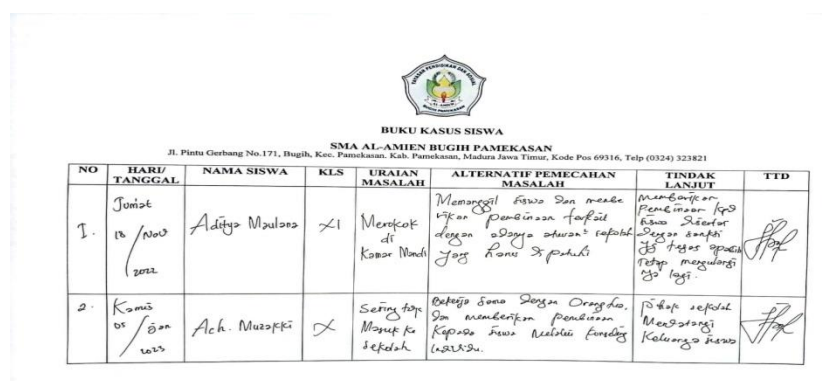 YAYASAN PENDIDIKAN DAN SOSIAL
AL-AMIEN
BUGIH PAMEKASAN
BUKU KASUS SISWA
SMA AL-AMIEN BUGIH PAMEKASAN
Jl. Pintu Gerbang No.171, Bugih, Kec. Pamekasan. Kab. Pamekasan, Madura Jawa Timur, Kode Pos 69316, Telp (0324) 323821
NO HARI/ TANGGAL NAMA SISWA KLS URAIAN MASALAH ALTERNATIF PEMECAHAN MASALAH TINDAK LANJUT TTD
1.
Jumat
18 / Nov
2022
Aditya Maulana
XI
Merokok
di
Kamar Mandi
Memanggil siswa dan membe
rikan pembinaan terkait
dengan adanya aturan² sekolah
yang harus dipatuhi
Memberikan
pembinaan kpd
siswa disertai
dengan sanksi
yg tegas apabila
tetap mengulangi
nya lagi.
2.
Kamis
05 / Jan
2023
Ach. Muzakki
X
Sering tdk
Masuk ke
sekolah
Bekerja sama dengan Orang tua,
dan memberikan pembinaan
Kepada siswa Melalui konseling
individu.
pihak sekolah
Mendatangi
Keluarga siswa